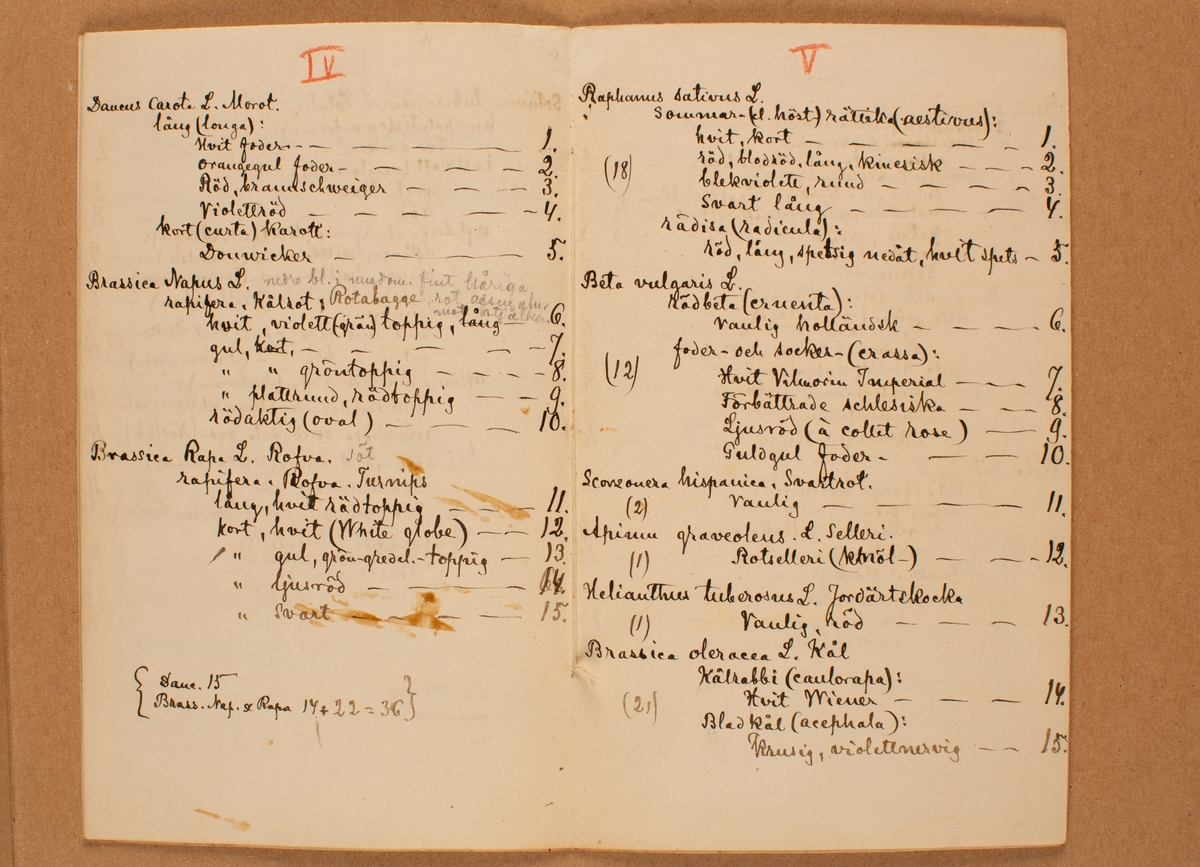 IV
Daucus Carota L. Morot.
lång (longa):
Hvit foder - - - - - 1.
orangegul foder - - - - - 2.
Röd, braunschweiger - - - - 3.
Violettröd - - - - - 4.
kort (curta) karott:
Donwicker - - - - 5.
Brassica Napus L. nedre bl. i ungdom. fint håriga
rapifera. Kålrot, Rotabagge, rot
hvit, violett (grön) toppig, lång - 6.
gul, kort, - - - - - 7.
" " gröntoppig - - - - 8.
" plattrund, rödtoppig - - - 9.
rödaktig (oval) - - - - 10.
Brassica Rapa L. Rofva. söt
rapifera. Rofva. Turnips
lång, hvit rödtoppig - - - 11.
kort, hvit (White globe) - - 12.
" gul, grön-gredel.-toppig - 13.
" ljusröd - - - - 14.
" Svart - - - - 15.
{ Dauc. 15
Brass. Nap. & Rapa 14 + 22 = 36 }
V
Raphanus sativus L.
Sommar- (el. höst) rättika (aestivus):
hvit, kort - - - - - 1.
(18) röd, blodröd, lång, kinesisk - - - 2.
blekviolett, rund - - - - 3.
Svart lång - - - - 4.
rädisa (radicula):
röd, lång, spetsig nedåt, hvit spets - 5.
Beta vulgaris L.
Rödbeta (cruenta):
Vanlig holländsk - - - - 6.
foder- och socker- (crassa):
(12) Hvit Vilmorin Imperial - - - 7.
Förbättrade schlesiska - - - 8.
Ljusröd (à collet rose) - - - 9.
Guldgul foder - - - - 10.
Scorzonera hispanica. Svartrot.
(2) Vanlig - - - - 11.
Apium graveolens. L. Selleri.
(1) Rotselleri (knöl-) - - - - 12.
Helianthus tuberosus L. Jordärtskocka
(1) Vanlig, röd - - - - 13.
Brassica oleracea L. Kål
Kålrabbi (caulorapa):
(21) Hvit Wiener - - - - 14.
Bladkål (acephala):
Krusig, violettnervig - - - 15.